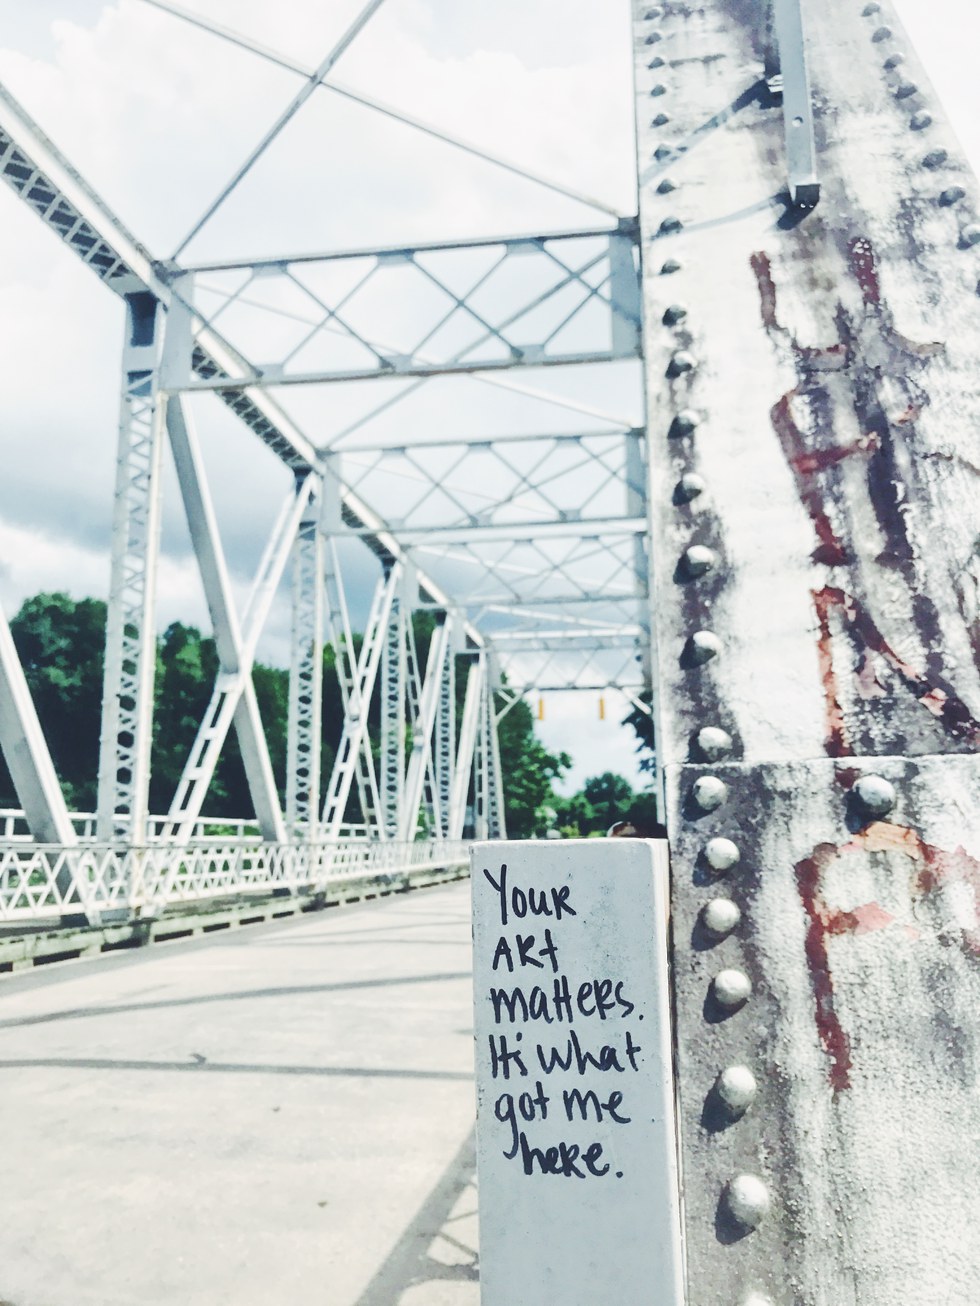 Your
ARt
matters.
It's what
got me
here.